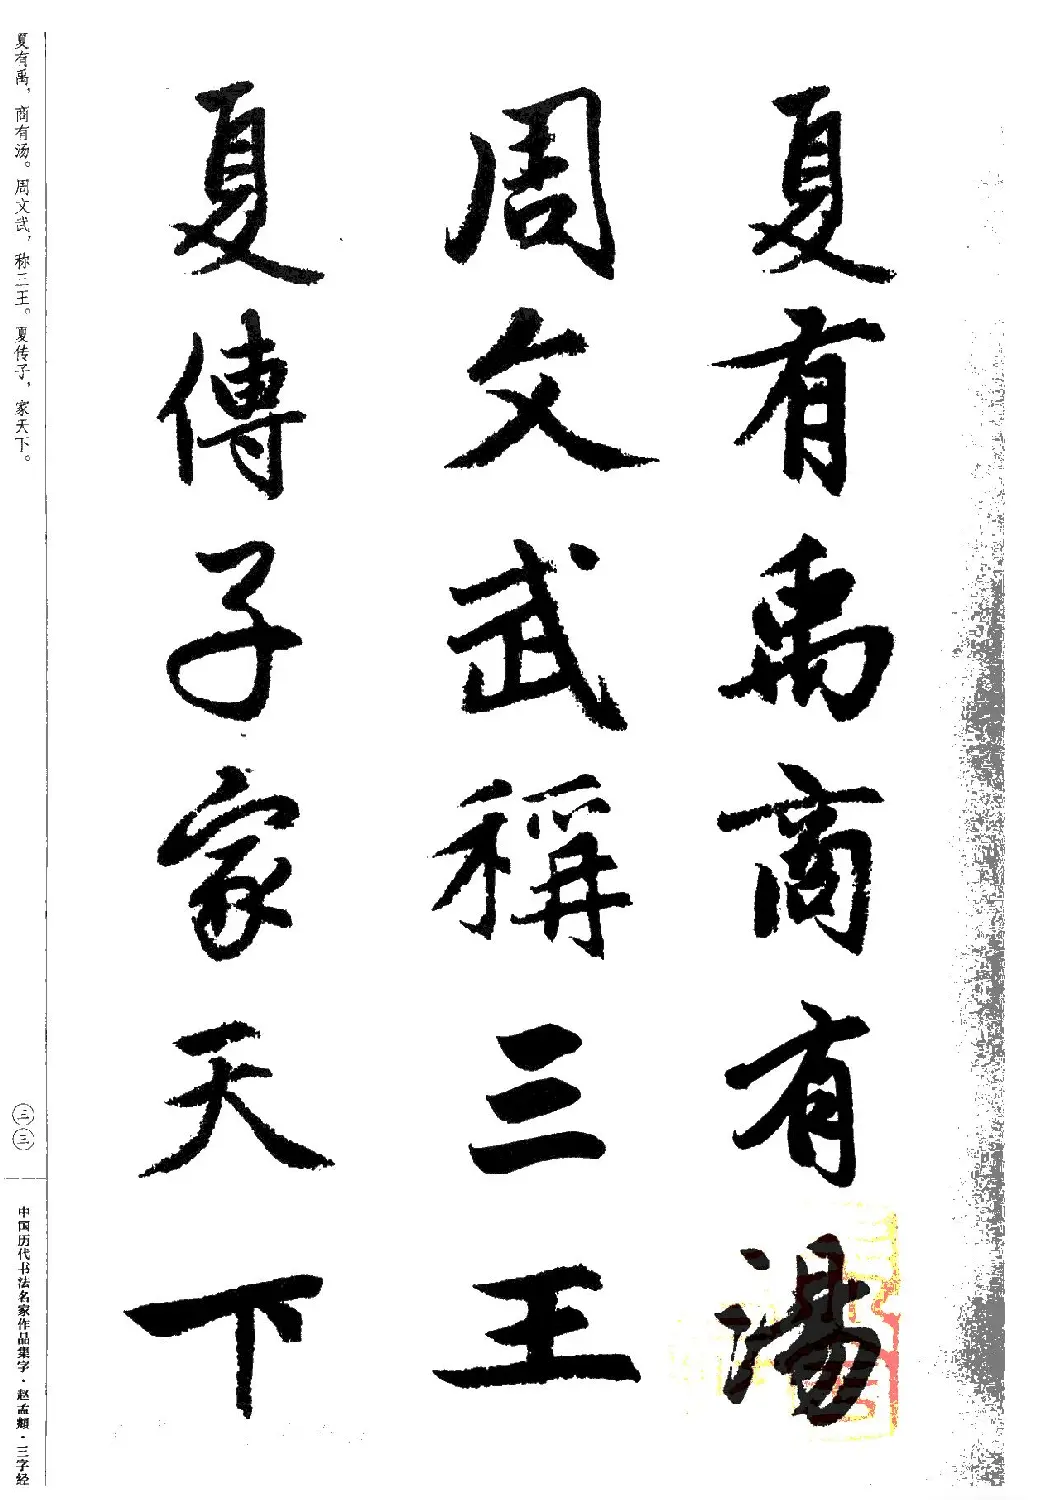 夏有禹商有湯
周文武稱三王
夏傳子家天下
夏有禹，商有汤。周文武，称三王。夏传子，家天下。
三三
中国历代书法名家作品集字·赵孟頫·三字经